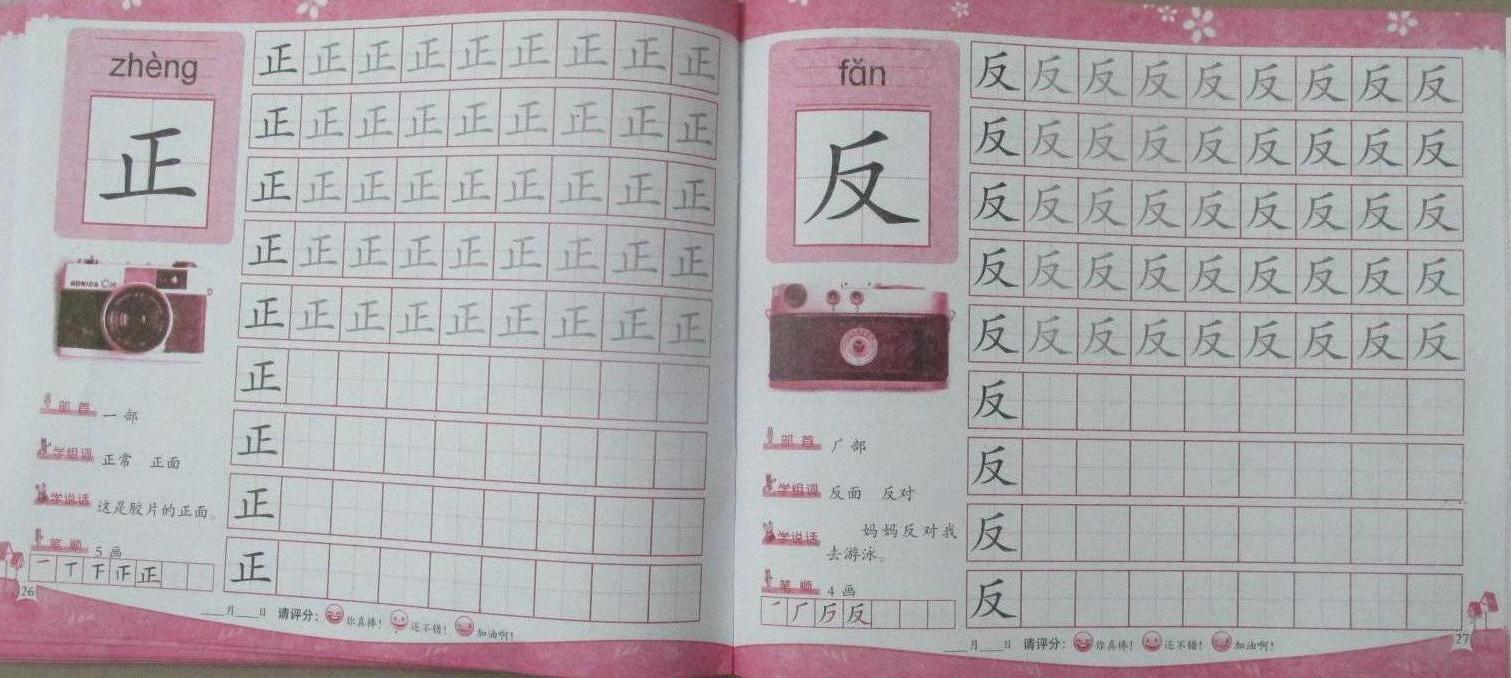 zhèng
正
正 正 正 正 正 正 正 正 正
正 正 正 正 正 正 正 正 正
正 正 正 正 正 正 正 正 正
正 正 正 正 正 正 正 正 正
正 正 正 正 正 正 正 正 正
正
正
正
正
KONICA C35
部首 一部
学组词 正常 正面
学说话 这是胶片的正面。
笔顺 5画
正
26
月 日 请评分: 你真棒! 还不错! 加油啊!
fǎn
反
反 反 反 反 反 反 反 反 反
反 反 反 反 反 反 反 反 反
反 反 反 反 反 反 反 反 反
反 反 反 反 反 反 反 反 反
反 反 反 反 反 反 反 反 反
反
反
反
反
部首 厂部
学组词 反面 反对
学说话 妈妈反对我
去游泳。
笔顺 4画
反
月 日 请评分: 你真棒! 还不错! 加油啊!
27